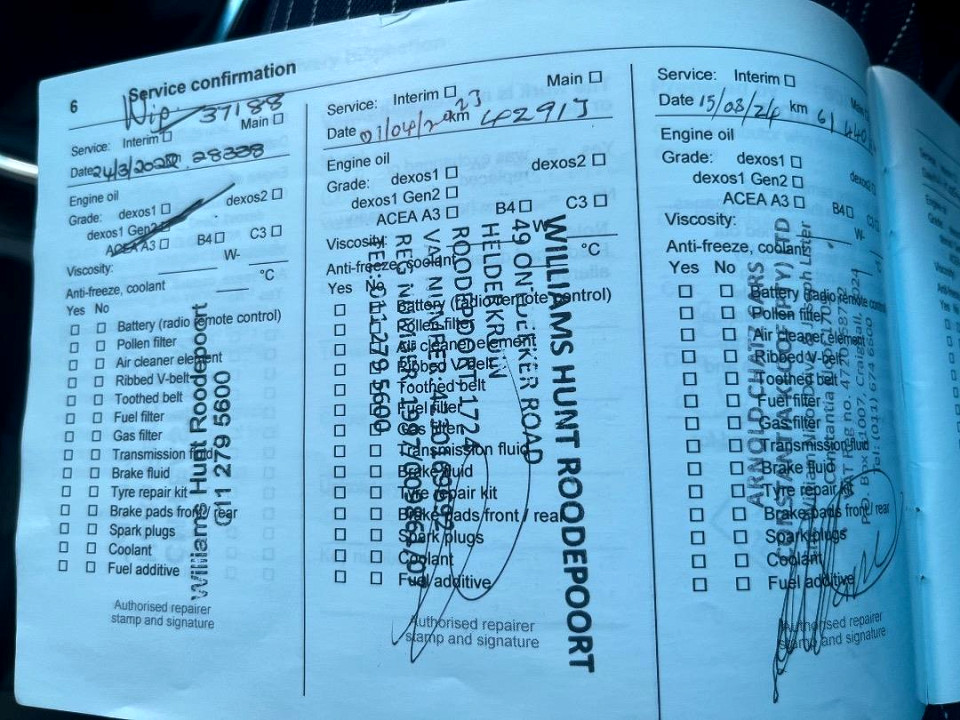 6 Service confirmation
Wip 37188
Service: Interim Main
Date 24/3/2022 28338
Engine oil
Grade: dexos1 dexos2
dexos1 Gen2
ACEA A3 B4 C3
Viscosity: W-
Anti-freeze, coolant °C
Yes No
Battery (radio remote control)
Pollen filter
Air cleaner element
Ribbed V-belt
Toothed belt
Fuel filter
Gas filter
Transmission fluid
Brake fluid
Tyre repair kit
Brake pads front / rear
Spark plugs
Coolant
Fuel additive
Williams Hunt Roodepoort
011 279 5600
Authorised repairer
stamp and signature
Service: Interim Main
Date 01/04/2023 km 42913
Engine oil
Grade: dexos1 dexos2
dexos1 Gen2
ACEA A3 B4 C3
Viscosity: W-
Anti-freeze, coolant °C
Yes No
Battery (radio remote control)
Pollen filter
Air cleaner element
Ribbed V-belt
Toothed belt
Fuel filter
Gas filter
Transmission fluid
Brake fluid
Tyre repair kit
Brake pads front / rear
Spark plugs
Coolant
Fuel additive
WILLIAMS HUNT ROODEPOORT
ROAD
HELDERKRUIN
ROODEPOORT 1724
TEL: 011 279 5600
Authorised repairer
stamp and signature
Service: Interim
Date 15/08/24 km
Engine oil
Grade: dexos1
dexos1 Gen2
ACEA A3 B4
Viscosity: W-
Anti-freeze, coolant
Yes No
Battery (radio remote
Pollen filter
Air cleaner element
Ribbed V-belt
Toothed belt
Fuel filter
Gas filter
Transmission fluid
Brake fluid
Tyre repair kit
Brake pads front / rear
Spark plugs
Coolant
Fuel additive
ARNOLD CHATZ CARS
Tel: (011) 674 6600
Authorised repairer
stamp and signature